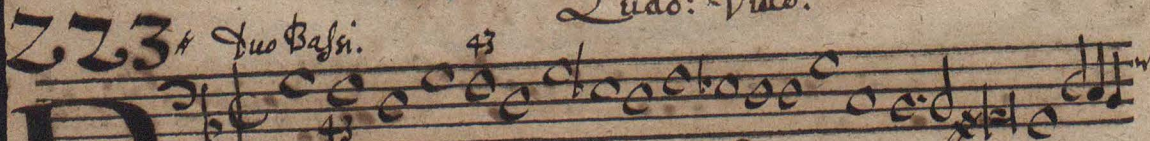 Ludo: Viad.
223 Duo Bassi.
43
43